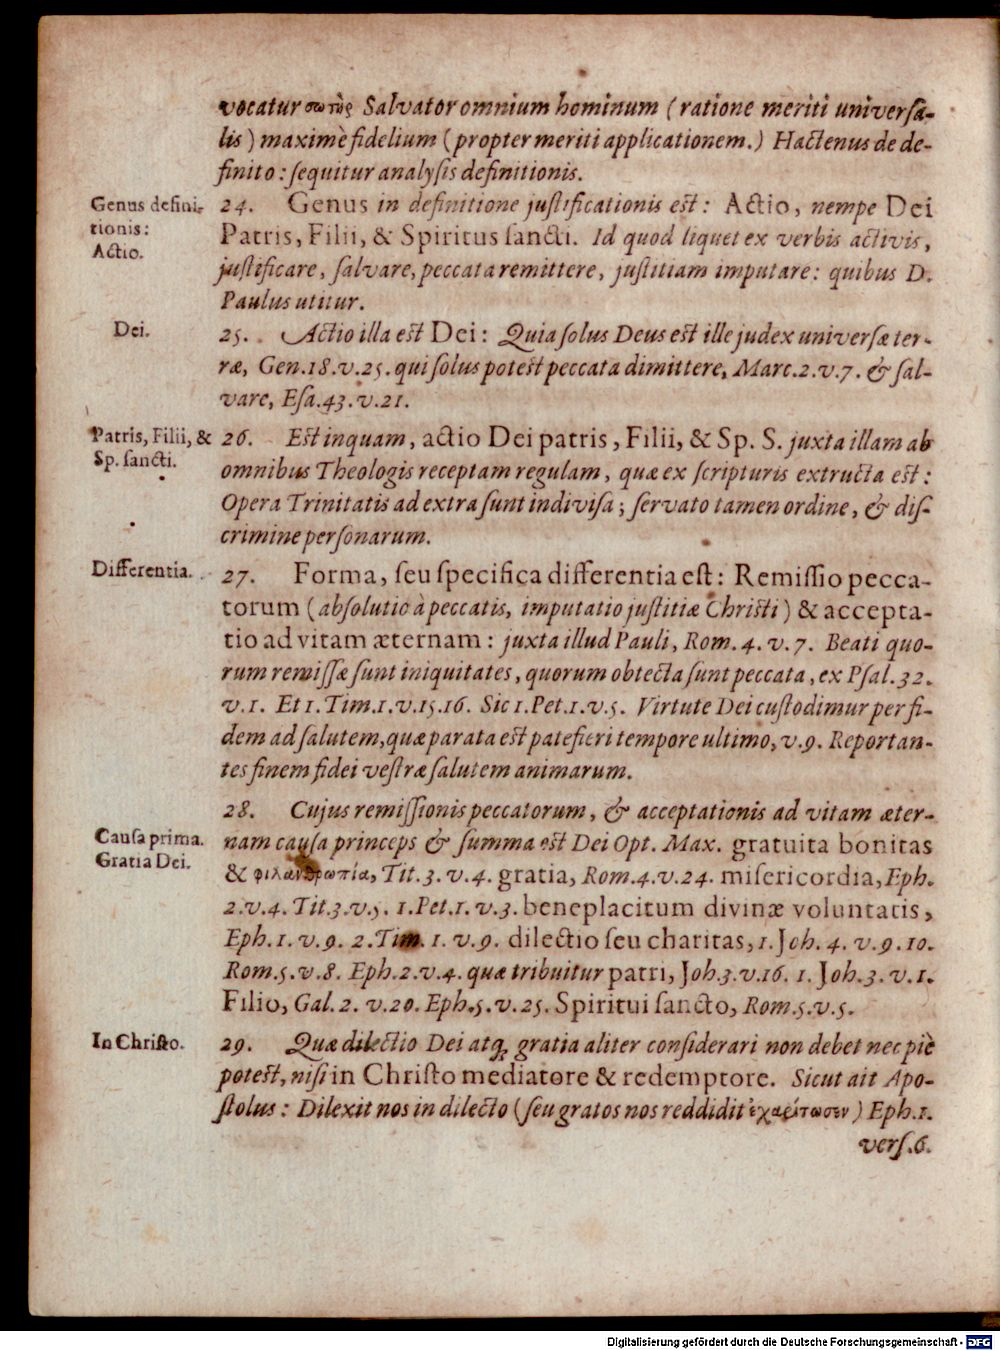 vocatur σωτὴρ Salvator omnium hominum (ratione meriti universa-
lis) maximè fidelium (propter meriti applicationem.) Hactenus de de-
finito: sequitur analysis definitionis.
Genus defini-
tionis:
Actio.
24. Genus in definitione justificationis est: Actio, nempe Dei
Patris, Filii, & Spiritus sancti. Id quod liquet ex verbis activis,
justificare, salvare, peccata remittere, justitiam imputare: quibus D.
Paulus utitur.
Dei.
25. Actio illa est Dei: Quia solus Deus est ille judex universæ ter-
ræ, Gen. 18. v. 25. qui solus potest peccata dimittere, Marc. 2. v. 7. & sal-
vare, Esa. 43. v. 21.
Patris, Filii, &
Sp. sancti.
26. Est inquam, actio Dei patris, Filii, & Sp. S. juxta illam ab
omnibus Theologis receptam regulam, quæ ex scripturis extructa est:
Opera Trinitatis ad extra sunt indivisa; servato tamen ordine, & dis-
crimine personarum.
Differentia.
27. Forma, seu specifica differentia est: Remissio pecca-
torum (absolutio à peccatis, imputatio justitiæ Christi) & accepta-
tio ad vitam æternam: juxta illud Pauli, Rom. 4. v. 7. Beati quo-
rum remissæ sunt iniquitates, quorum obtecta sunt peccata, ex Psal. 32.
v. 1. Et 1. Tim. 1. v. 15. 16. Sic 1. Pet. 1. v. 5. Virtute Dei custodimur per fi-
dem ad salutem, quæ parata est patefieri tempore ultimo, v. 9. Reportan-
tes finem fidei vestræ salutem animarum.
Causa prima.
Gratia Dei.
28. Cujus remissionis peccatorum, & acceptationis ad vitam æter-
nam causa princeps & summa est Dei Opt. Max. gratuita bonitas
& φιλανθρωπία, Tit. 3. v. 4. gratia, Rom. 4. v. 24. misericordia, Eph.
2. v. 4. Tit. 3. v. 5. 1. Pet. 1. v. 3. beneplacitum divinæ voluntatis,
Eph. 1. v. 9. 2. Tim. 1. v. 9. dilectio seu charitas, 1. Joh. 4. v. 9. 10.
Rom. 5. v. 8. Eph. 2. v. 4. quæ tribuitur patri, Joh. 3. v. 16. 1. Joh. 3. v. 1.
Filio, Gal. 2. v. 20. Eph. 5. v. 25. Spiritui sancto, Rom. 5. v. 5.
In Christo.
29. Quæ dilectio Dei atq; gratia aliter considerari non debet nec piè
potest, nisi in Christo mediatore & redemptore. Sicut ait Apo-
stolus: Dilexit nos in dilecto (seu gratos nos reddidit ἐχαρίτωσεν) Eph. 1.
vers. 6.
Digitalisierung gefördert durch die Deutsche Forschungsgemeinschaft - DFG